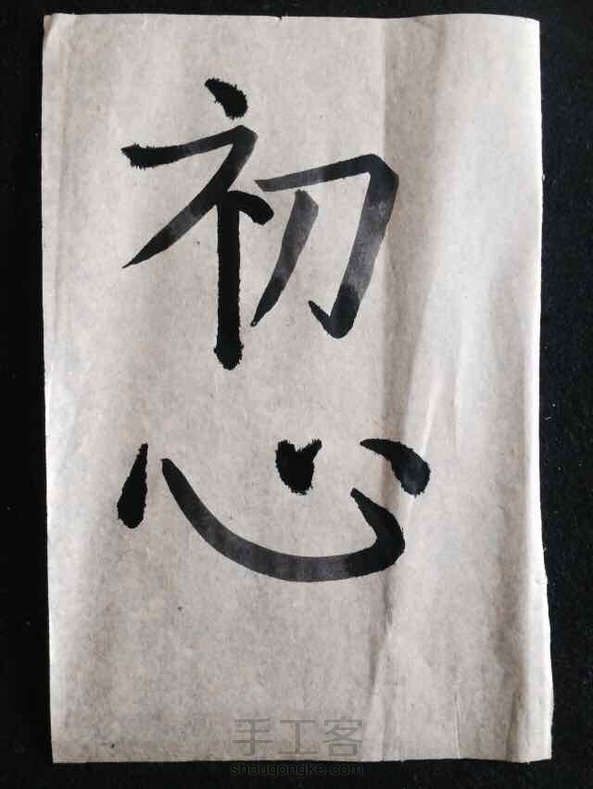 初
心
手工客
shougongke.com